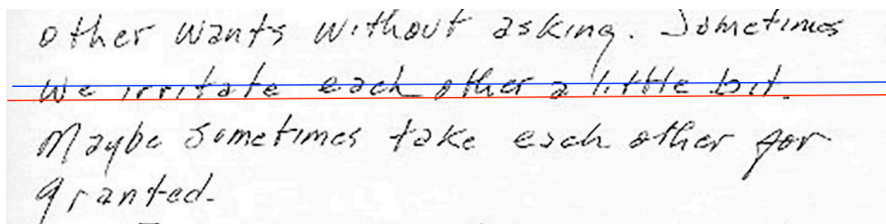 other wants without asking. Sometimes
we irritate each other a little bit.
Maybe sometimes take each other for
granted.